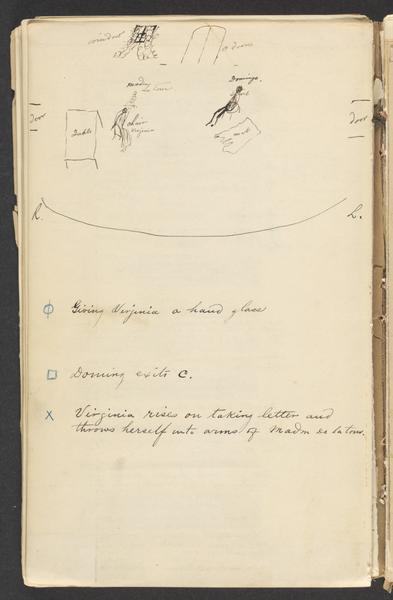 window
doors
Madm
La Tour
Domingo.
door
Table
chair
Virginia
mat
door
R.
L.
Giving Virginia a hand glass
Doming exits C.
X Virginia rises on taking letter and
throws herself into arms of Madm de la tour.